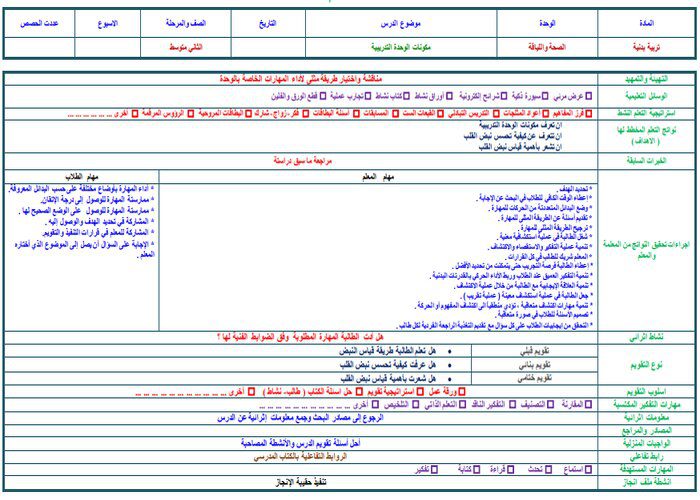 المادة الوحدة موضوع الدرس التاريخ الصف والمرحلة الاسبوع عددت الحصص
تربية بدنية الصحة واللياقة مكونات الوحدة التدريبية الثاني متوسط
التهيئة والتمهيد مناقشة واختيار طريقة مثلي لأداء المهارات الخاصة بالوحدة
الوسائل التعليمية عرض مرئي سبورة ذكية شرائح الكترونية أوراق نشاط كتاب نشاط تجارب عملية قطع الورق والفلين
استراتيجية التعلم النشط فرز المفاهيم اعواد المثلجات التدريس التبادلي القبعات الست المسابقات أسئلة البطاقات فكر - زاوج - شارك البطاقات المروحية الرؤوس المرقمة أخرى ... ... ... ... ... ...
نواتج التعلم المخطط لها
( الاهداف)
ان تعرف مكونات الوحدة التدريبية
ان تتعرف عن كيفية تحسس نبض القلب
ان تشعر بأهمية قياس نبض القلب
الخبرات السابقة مراجعة ما سبق دراستة
اجراءات تحقيق النواتج من المعلمة والمعلم
مهام المعلم
* تحديد الهدف .
* إعطاء الوقت الكافي للطلاب في البحث عن الإجابة .
* وضع البدائل المتعددة من الحركات للمهارة .
* تقديم أسئلة عن الطريقة المثلى للمهارة .
* ترجيح الطريقة المثلى للمهارة .
* شغل الطالبة في عملية استكشافية معنية .
* تنمية عملية التفكير والاستقصاء والاكتشاف .
* المعلم شريك للطالب في كل القرارات .
* إعطاء الطالبة فرصة التجريب حتى يتمكنت من تحديد الأفضل .
* تنمية التفكير العميق عند الطلاب وربط الأداء الحركي بالقدرات البدنية .
* تنمية العلاقة الإيجابية مع الطالبة من خلال عملية الاكتشاف .
* جعل الطالبة في عملية استكشاف معينة ( عملية تقريب ) .
* تنمية مهارات اكتشاف متعاقبة ، تؤدي منطقيا الى اكتشاف المفهوم أو الحركة .
* تصميم الأسئلة للطلاب في صورة متعاقبة .
* التحقق من إيجابيات الطلاب على كل سؤال مع تقديم التغذية الراجعة الفردية لكل طالب .
مهام الطلاب
* أداء المهارة بأوضاع مختلفة على حسب البدائل المعروفة.
* ممارستة المهارة للوصول إلى درجة الإتقان.
* ممارستة المهارة للوصول على الوضع الصحيح لها .
* المشاركة في تحديد الهدف والوصول إليه .
* المشاركة للمعلم في قرارات التنفيذ والتقويم.
* الإجابة على السؤال أن يصل إلى الموضوع الذي أختاره المعلم .
نشاط اثرائي هل أدت الطالبة المهارة المطلوبة وفق الضوابط الفنية لها ؟
نوع التقويم
تقويم قبلي • هل تعلم الطالبة طريقة قياس النبض
تقويم بنائي • هل عرفت كيفية تحسس نبض القلب
تقويم ختامي • هل شعرت بأهمية قياس نبض القلب
اسلوب التقويم ورقة عمل استراتيجية تقويم حل اسئلة الكتاب ( طالب- نشاط ) أخرى ... ... ... ... ... ...
مهارات التفكير المكتسبة المقارنة التصنيف التفكير الناقد التعلم الذاتي التلخيص أخرى ... ... ... ... ... ...
معلومات اثرائية الرجوع إلى مصادر البحث وجمع معلومات إثرائية عن الدرس
المصادر والمراجع
الواجبات المنزلية أحل أسئلة تقويم الدرس والأنشطة المصاحبة
رابط تفاعلي الروابط التفاعلية بالكتاب المدرسي
المهارات المستهدفة استماع تحدث قراءة كتابة تفكير
انشطة ملف انجاز تنفيذ حقيبة الإنجاز